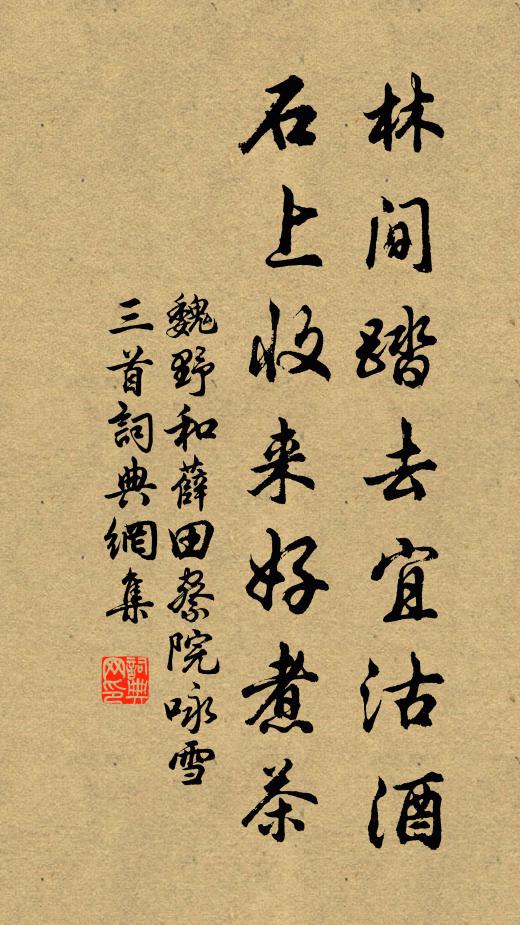 林間踏去宜沽酒
石上收来好煮茶
魏野和薛田察院咏雪
三首詞典網集
詞典网印